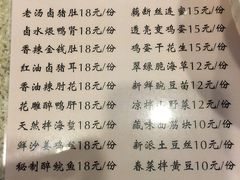 老汤卤猪肚18元/份
卤水煨鸭胗18元/份
香辣金钱肚18元/份
红油卤猪耳18元/份
香油辣肘花18元/份
花雕醉鸭肝18元/份
天然拌海蜇18元/份
鲜沙姜鸡18元/份
秘制醉鱼18元/份
藕断丝连蜜15元/份
透亮变鸡蛋15元/份
鸡蛋干花生15元/份
翠绿脆海草12元/份
新鲜豌豆苗12元/份
凉拌山野菜12元/份
藏味面筋块10元/份
新派土豆丝10元/份
春菜拌黄豆10元/份